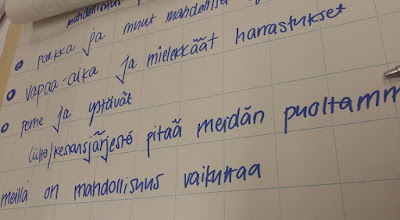 mahdollisuus
palkka ja muut mahdollis
vapaa-aika ja mielekkäät harrastukset
perhe ja ystävät
liitto/keskusjärjestö pitää meidän puoltamm
meillä on mahdollisuus vaikuttaa